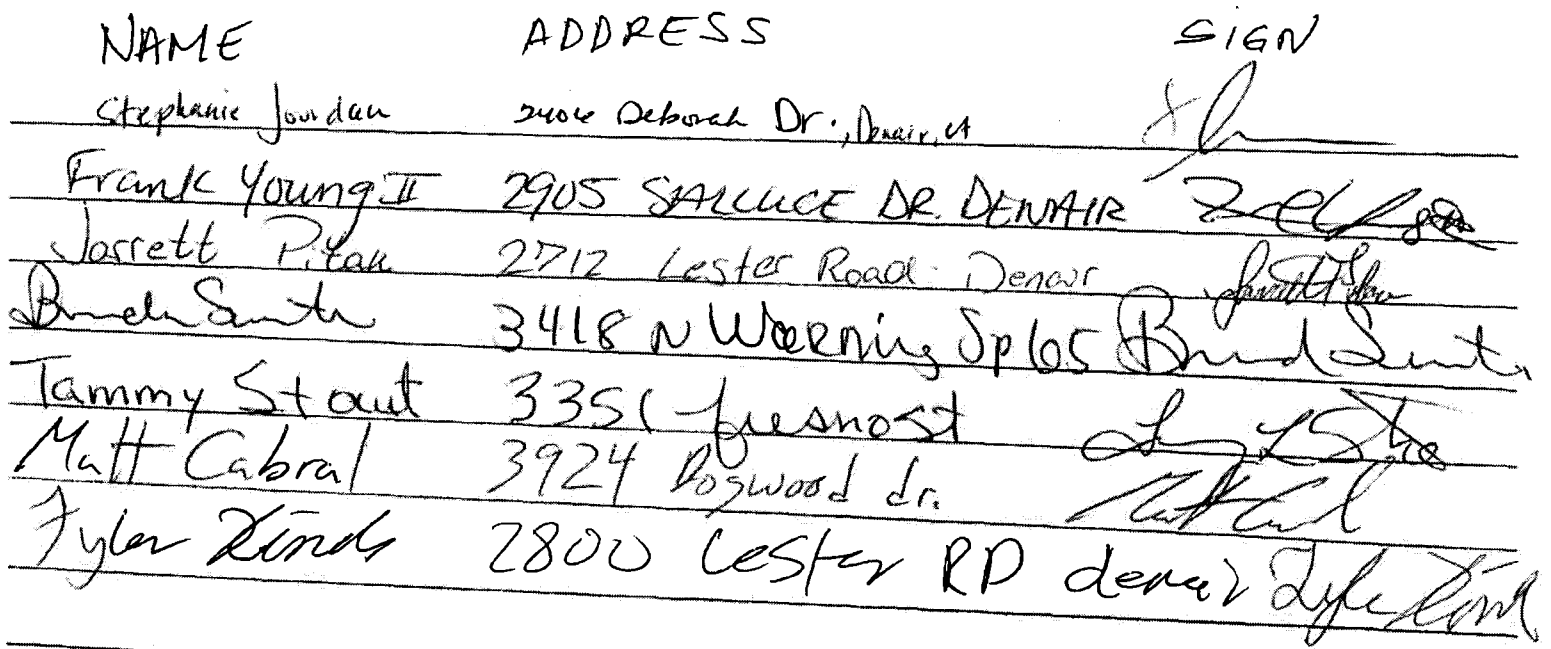 NAME ADDRESS SIGN
Stephanie Jourdan 2404 Deborah Dr., Denair, CA
Frank Young II 2905 SALLUCE DR. DENAIR
Jarrett Pitau 2712 Lester Road Denair
Brenda Smith 3418 N Waring Sp 65
Tammy Stout 3351 fresno st
Matt Cabral 3924 Dogwood dr.
Tyler Hinds 2800 Lester RD denair